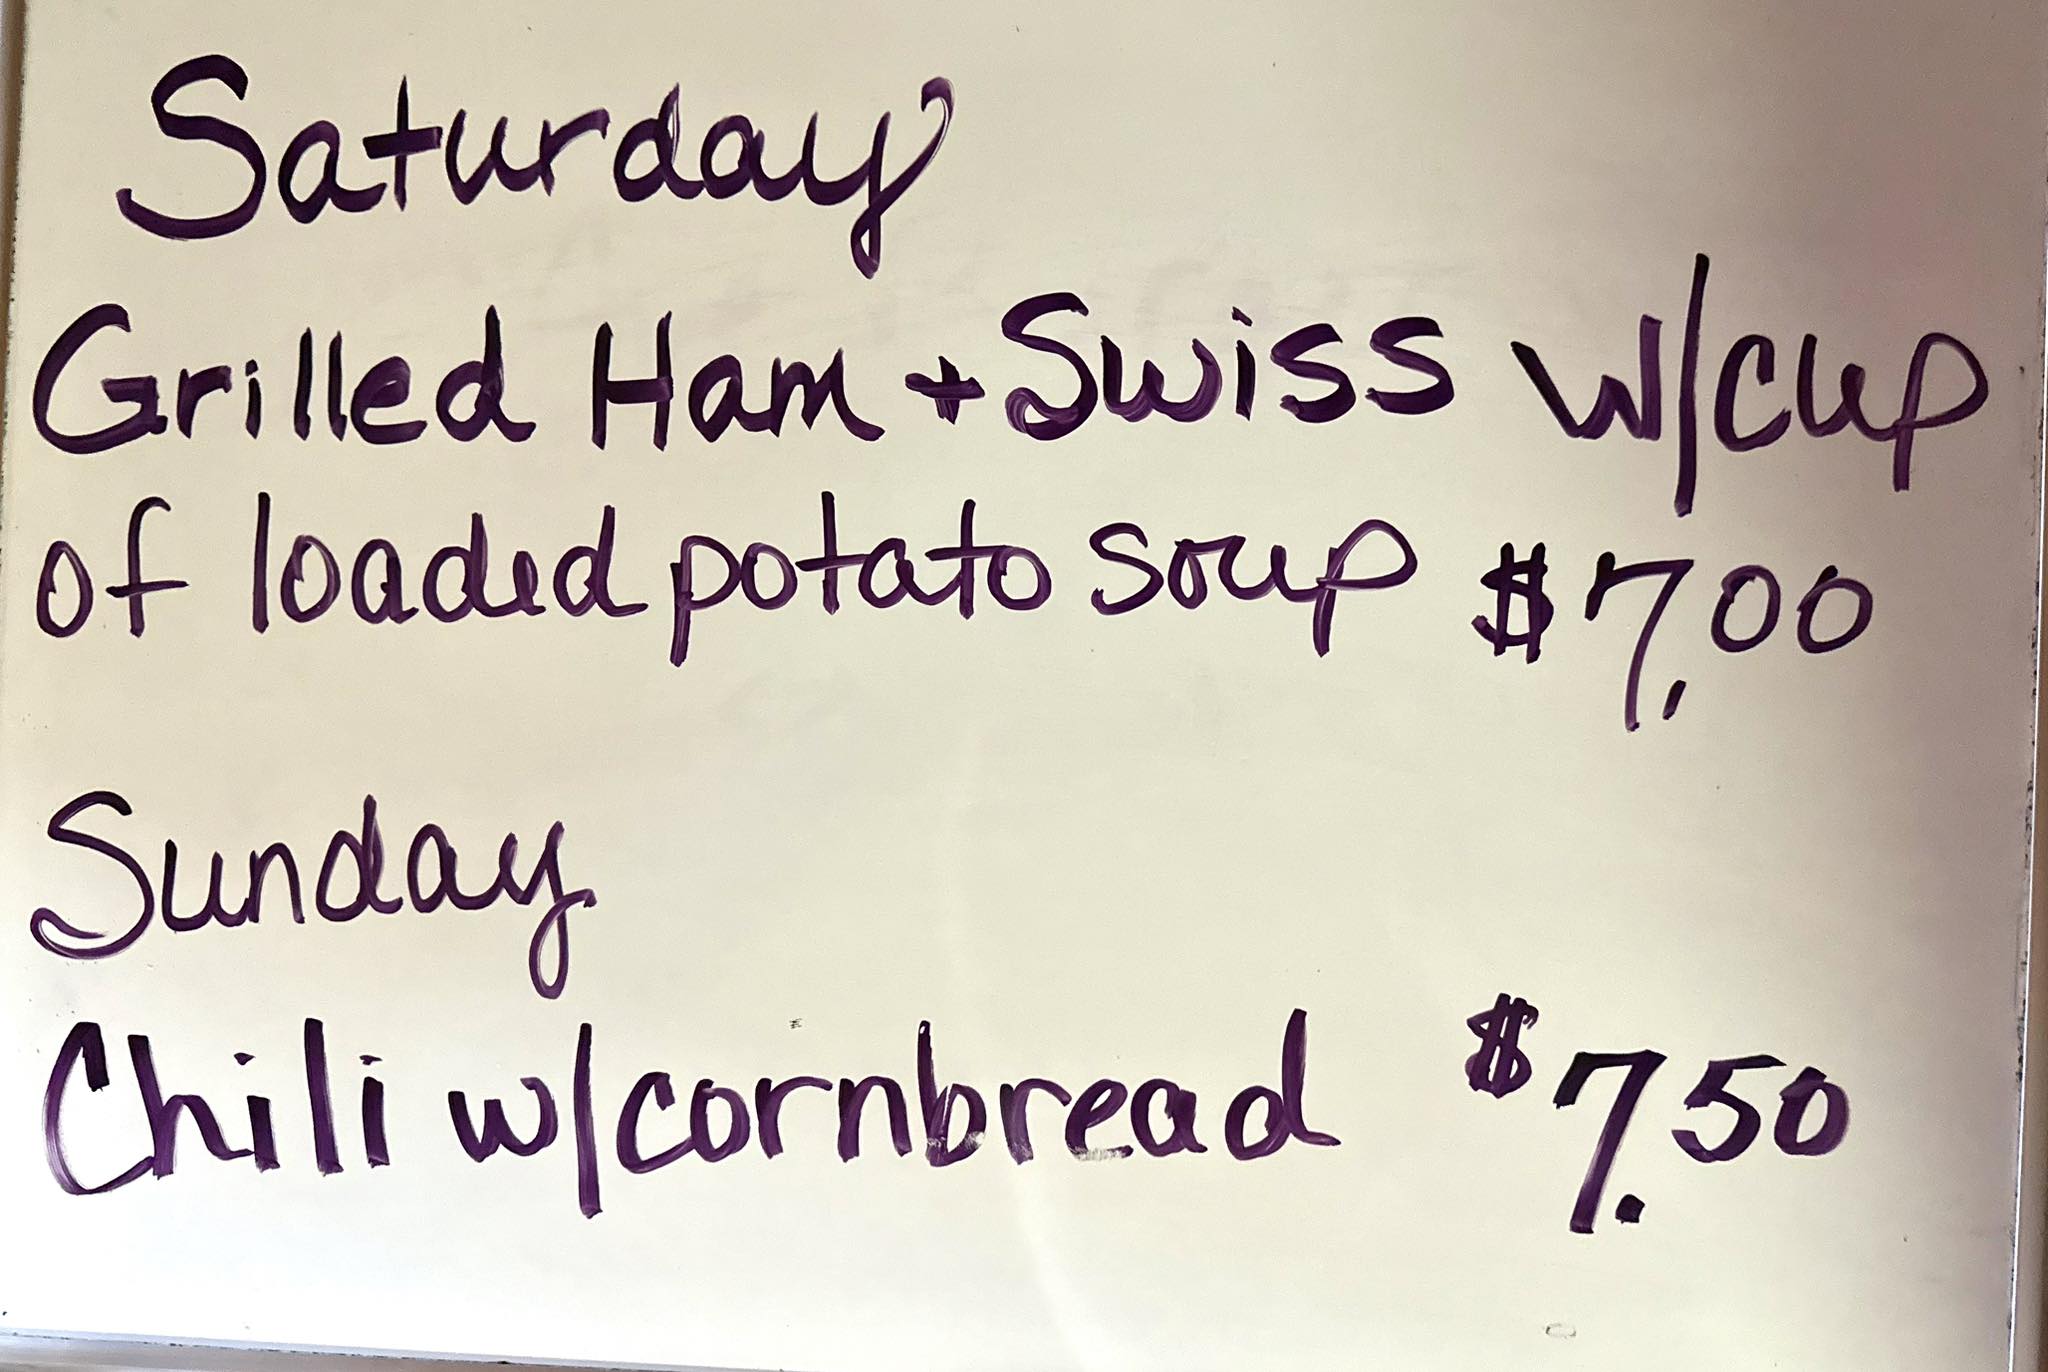 Saturday
Grilled Ham + Swiss w/cup
of loaded potato soup $7.00
Sunday
Chili w/cornbread $7.50